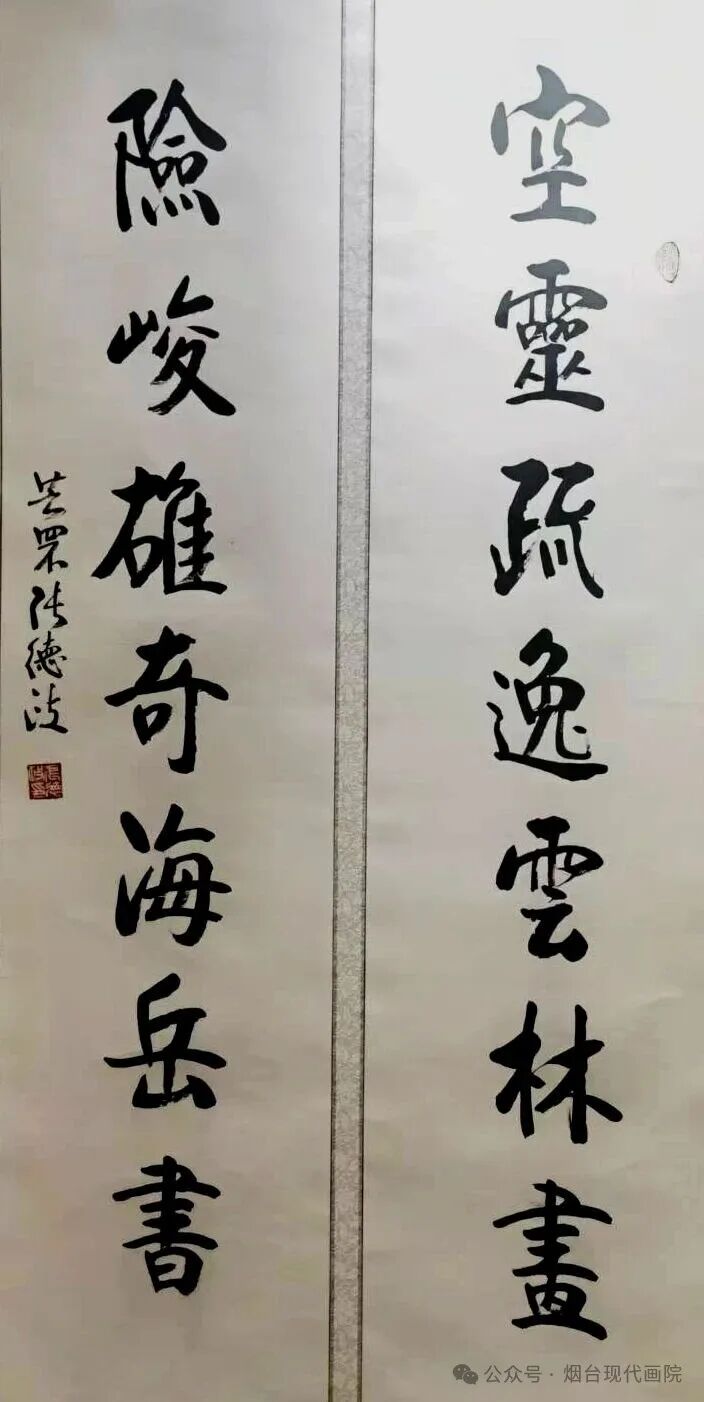 空靈疏逸雲林畫
險峻雄奇海岳書
芝罘張德波
公众号 · 烟台现代画院